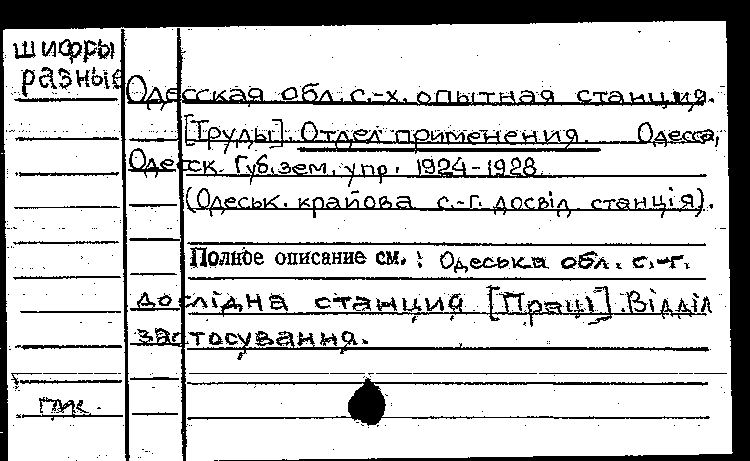 шифры
разные
Одесская обл. с.-х. опытная станция.
[Труды]. Отдел применения. Одесса,
Одесск. Губ. зем. упр. 1924-1928.
(Одеськ. крайова с.-г. досвід. станція).
Полное описание см. : Одеська обл. с.-г.
дослідна станция [Праці]. Відділ
застосування.